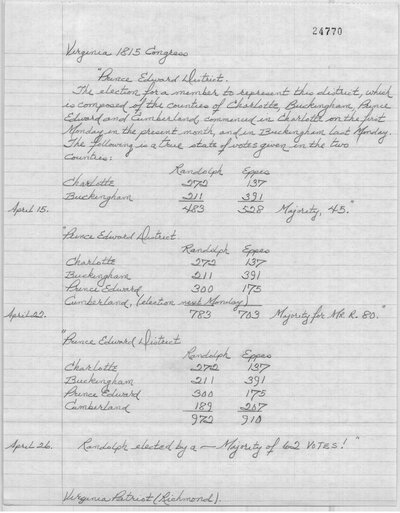 24770
Virginia 1815 Congress
"Prince Edward District.
The election for a member to represent this district, which
is composed of the counties of Charlotte, Buckingham, Prince
Edward and Cumberland, commenced in Charlotte on the first
Monday in the present month, and in Buckingham last Monday.
The following is a true state of votes given in the two
Counties:
Randolph Eppes
Charlotte 272 137
Buckingham 211 391
April 15. 483 528 Majority, 45."
"Prince Edward District
Randolph Eppes
Charlotte 272 137
Buckingham 211 391
Prince Edward 300 175
Cumberland, (election next Monday)
April 22. 783 703 Majority for Mr. R. 80."
"Prince Edward District
Randolph Eppes
Charlotte 272 137
Buckingham 211 391
Prince Edward 300 175
Cumberland 189 207
972 910
April 26. Randolph elected by a — Majority of 62 VOTES!"
Virginia Patriot (Richmond).